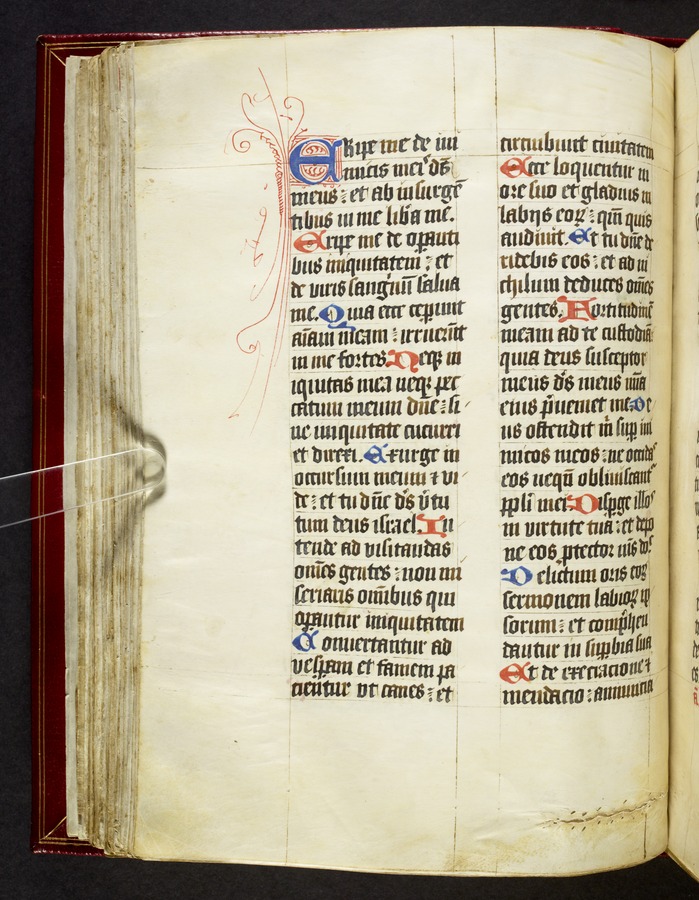 Eripe me de ini
micis mei᷒ ds̄
meus : et ab insurgē
tibus in me lib̄a me.
Eripe me de opāuti
bus iniquitatem : et
de viris sanguīn salua
me. Quia ecce ceperunt
aīam meam : irruerūt
in me fortes Neqȝ in
iquitas mea neqȝ pec
catum meum dn̄e : si
ne iniquitate cucurri
et direxi. Exurge in
occursum meum ⁊ vi
de : et tu dn̄e ds̄ v̄tu
tum deus israel In
tende ad visitandas
om̄es gentes : non mi
seriaris om̄ibus qui
operantur iniquitatem
Conuertantur ad
vesp̄am et famem pa
cientur vt canes : et
circuibunt ciuitatem
Ecce loquentur in
ore suo et gladius in
labijs eoꝝ : qm̄ quis
audiuit. Et tu dn̄e de
ridebis eos : et ad ni
chilum deduces om̄es
gentes. Fortitudinē
meam ad te custodiā
quia deus susceptor
meus ds̄ meus mīa
eius p̄ueniet me. De
us ostendit m̄ sup̄ ini
micos meos : ne occidas
eos nequn̄ obliuiscant᷑
pp̄li mei. Disp̄ge illos
in virtute tua : et depo
ne eos ꝓtector m̄s dn̄e
Delictum oris eoꝝ
sermonem labioꝝ ip
sorum : et comp̄hen
dantur in sup̄bia sua
Et de execracione ⁊
mendacio : annuncia